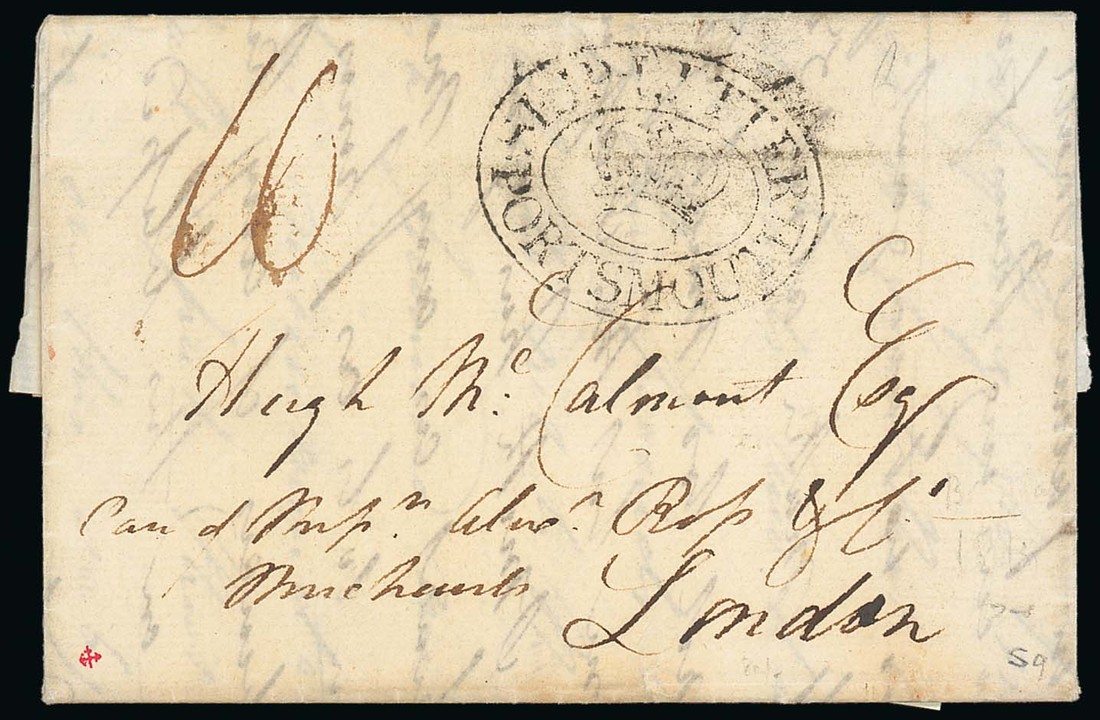 16
SHIP LETTER
PORTSMOUTH
Hugh Mc. Calmont Esq
Care of Messrs. Alexr. Ross & Co.
Merchants
London
59